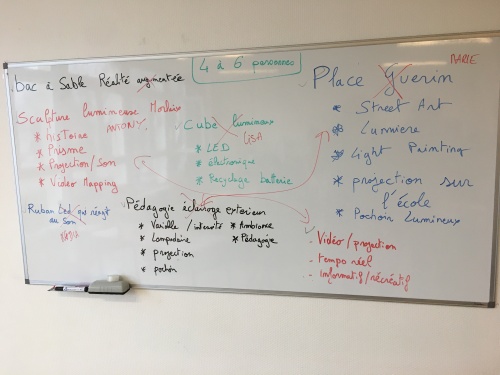 4 à 6 personnes
MARIE
bac à Sable Réalité augmentée
Sculpture lumineuse Morlaix
ANTONY
* histoire
* Prisme
* Projection/Son
* Video Mapping
Cube lumineux
LISA
* LED
* électronique
* Recyclage batterie
Place Guerin
* Street Art
* Lumiere
* Light Painting
* projection sur
l'école
* Pochoir Lumineux
Ruban Led qui réagit
au Son
Pédagogie éclairage exterieur
* Variable / intensité
* Lampadaire
* projection
* pochoir
* Ambiance
* Pédagogie
- Vidéo/projection
- tempo réel
- Informatif/récréatif